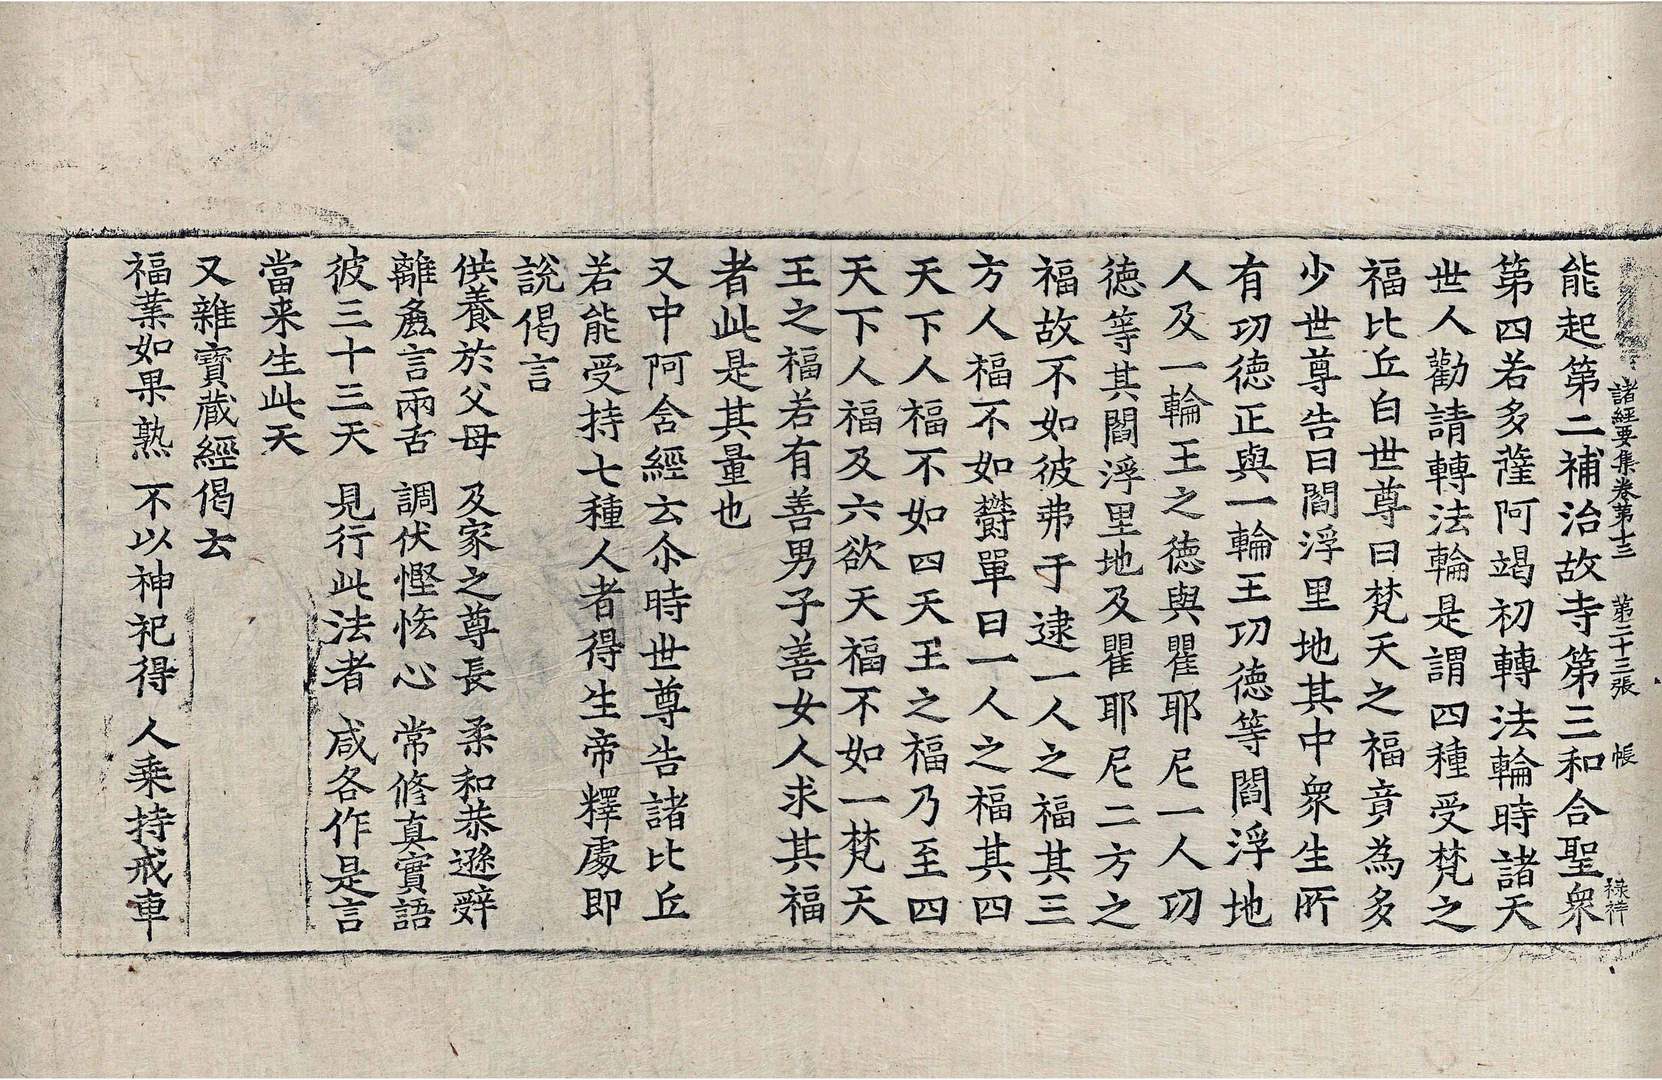 諸經要集卷第十三 第二十三張 帳 祿祥
能起第二補治故寺第三和合聖衆
第四若多薩阿竭初轉法輪時諸天
世人勸請轉法輪是謂四種受梵之
福比丘白世尊曰梵天之福竟為多
少世尊告曰閻浮里地其中衆生所
有功德正與一輪王功德等閻浮地
人及一輪王之德與瞿耶尼一人功
德等其閻浮里地及瞿耶尼二方之
福故不如彼弗于逮一人之福其三
方人福不如欝單曰一人之福其四
天下人福不如四天王之福乃至四
天下人福及六欲天福不如一梵天
王之福若有善男子善女人求其福
者此是其量也
又中阿含經云尒時世尊告諸比丘
若能受持七種人者得生帝釋處即
說偈言
供養於父母 及家之尊長 柔和恭遜辤
離麁言兩舌 調伏慳悋心 常修真實語
彼三十三天 見行此法者 咸各作是言
當来生此天
又雜寶藏經偈云
福業如果熟 不以神祀得 人乗持戒車